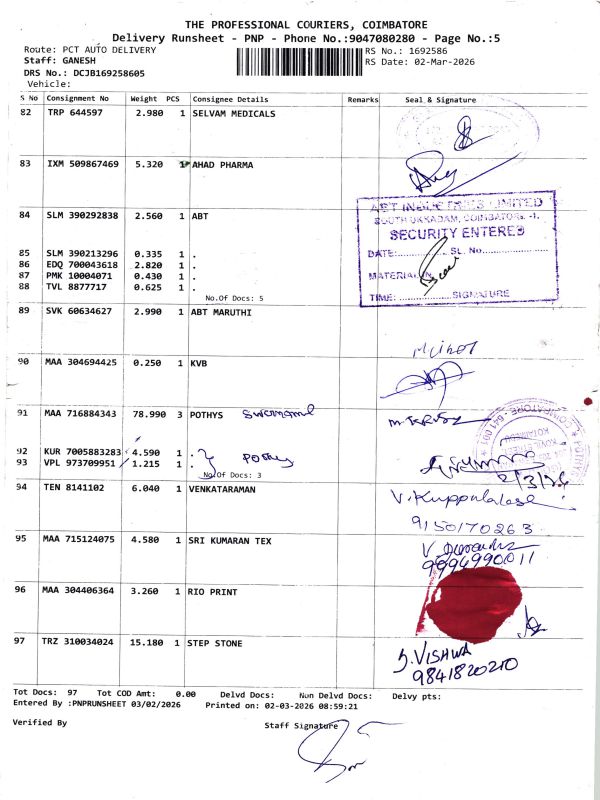 THE PROFESSIONAL COURIERS, COIMBATORE
Delivery Runsheet - PNP - Phone No.:9047080280 - Page No.:5
Route: PCT AUTO DELIVERY
RS No.: 1692586
Staff: GANESH
RS Date: 02-Mar-2026
DRS No.: DCJB169258605
Vehicle:
S No Consignment No Weight PCS Consignee Details Remarks Seal & Signature
82 TRP 644597 2.980 1 SELVAM MEDICALS
83 IXM 509867469 5.320 1 AHAD PHARMA
84 SLM 390292838 2.560 1 ABT
ABT INDUSTRIES LIMITED
SOUTH UKKADAM, COIMBATORE -1.
SECURITY ENTERED
DATE:............ SL. No............
MATERIAL IN
TIME:............ SIGNATURE
85 SLM 390213296 0.335 1 .
86 EDQ 700043618 2.820 1 .
87 PMK 10004071 0.430 1 .
88 TVL 8877717 0.625 1 .
No.Of Docs: 5
89 SVK 60634627 2.990 1 ABT MARUTHI
90 MAA 304694425 0.250 1 KVB
91 MAA 716884343 78.990 3 POTHYS
92 KUR 7005883283 4.590 1 .
93 VPL 973709951 1.215 1 . Pothys
No.Of Docs: 3
2/3/26
94 TEN 8141102 6.040 1 VENKATARAMAN
9150170263
95 MAA 715124075 4.580 1 SRI KUMARAN TEX
9994990011
96 MAA 304406364 3.260 1 RIO PRINT
97 TRZ 310034024 15.180 1 STEP STONE
S. VISHWA
9841820210
Tot Docs: 97 Tot COD Amt: 0.00 Delvd Docs: Non Delvd Docs: Delvy pts:
Entered By :PNPRUNSHEET 03/02/2026 Printed on: 02-03-2026 08:59:21
Verified By Staff Signature